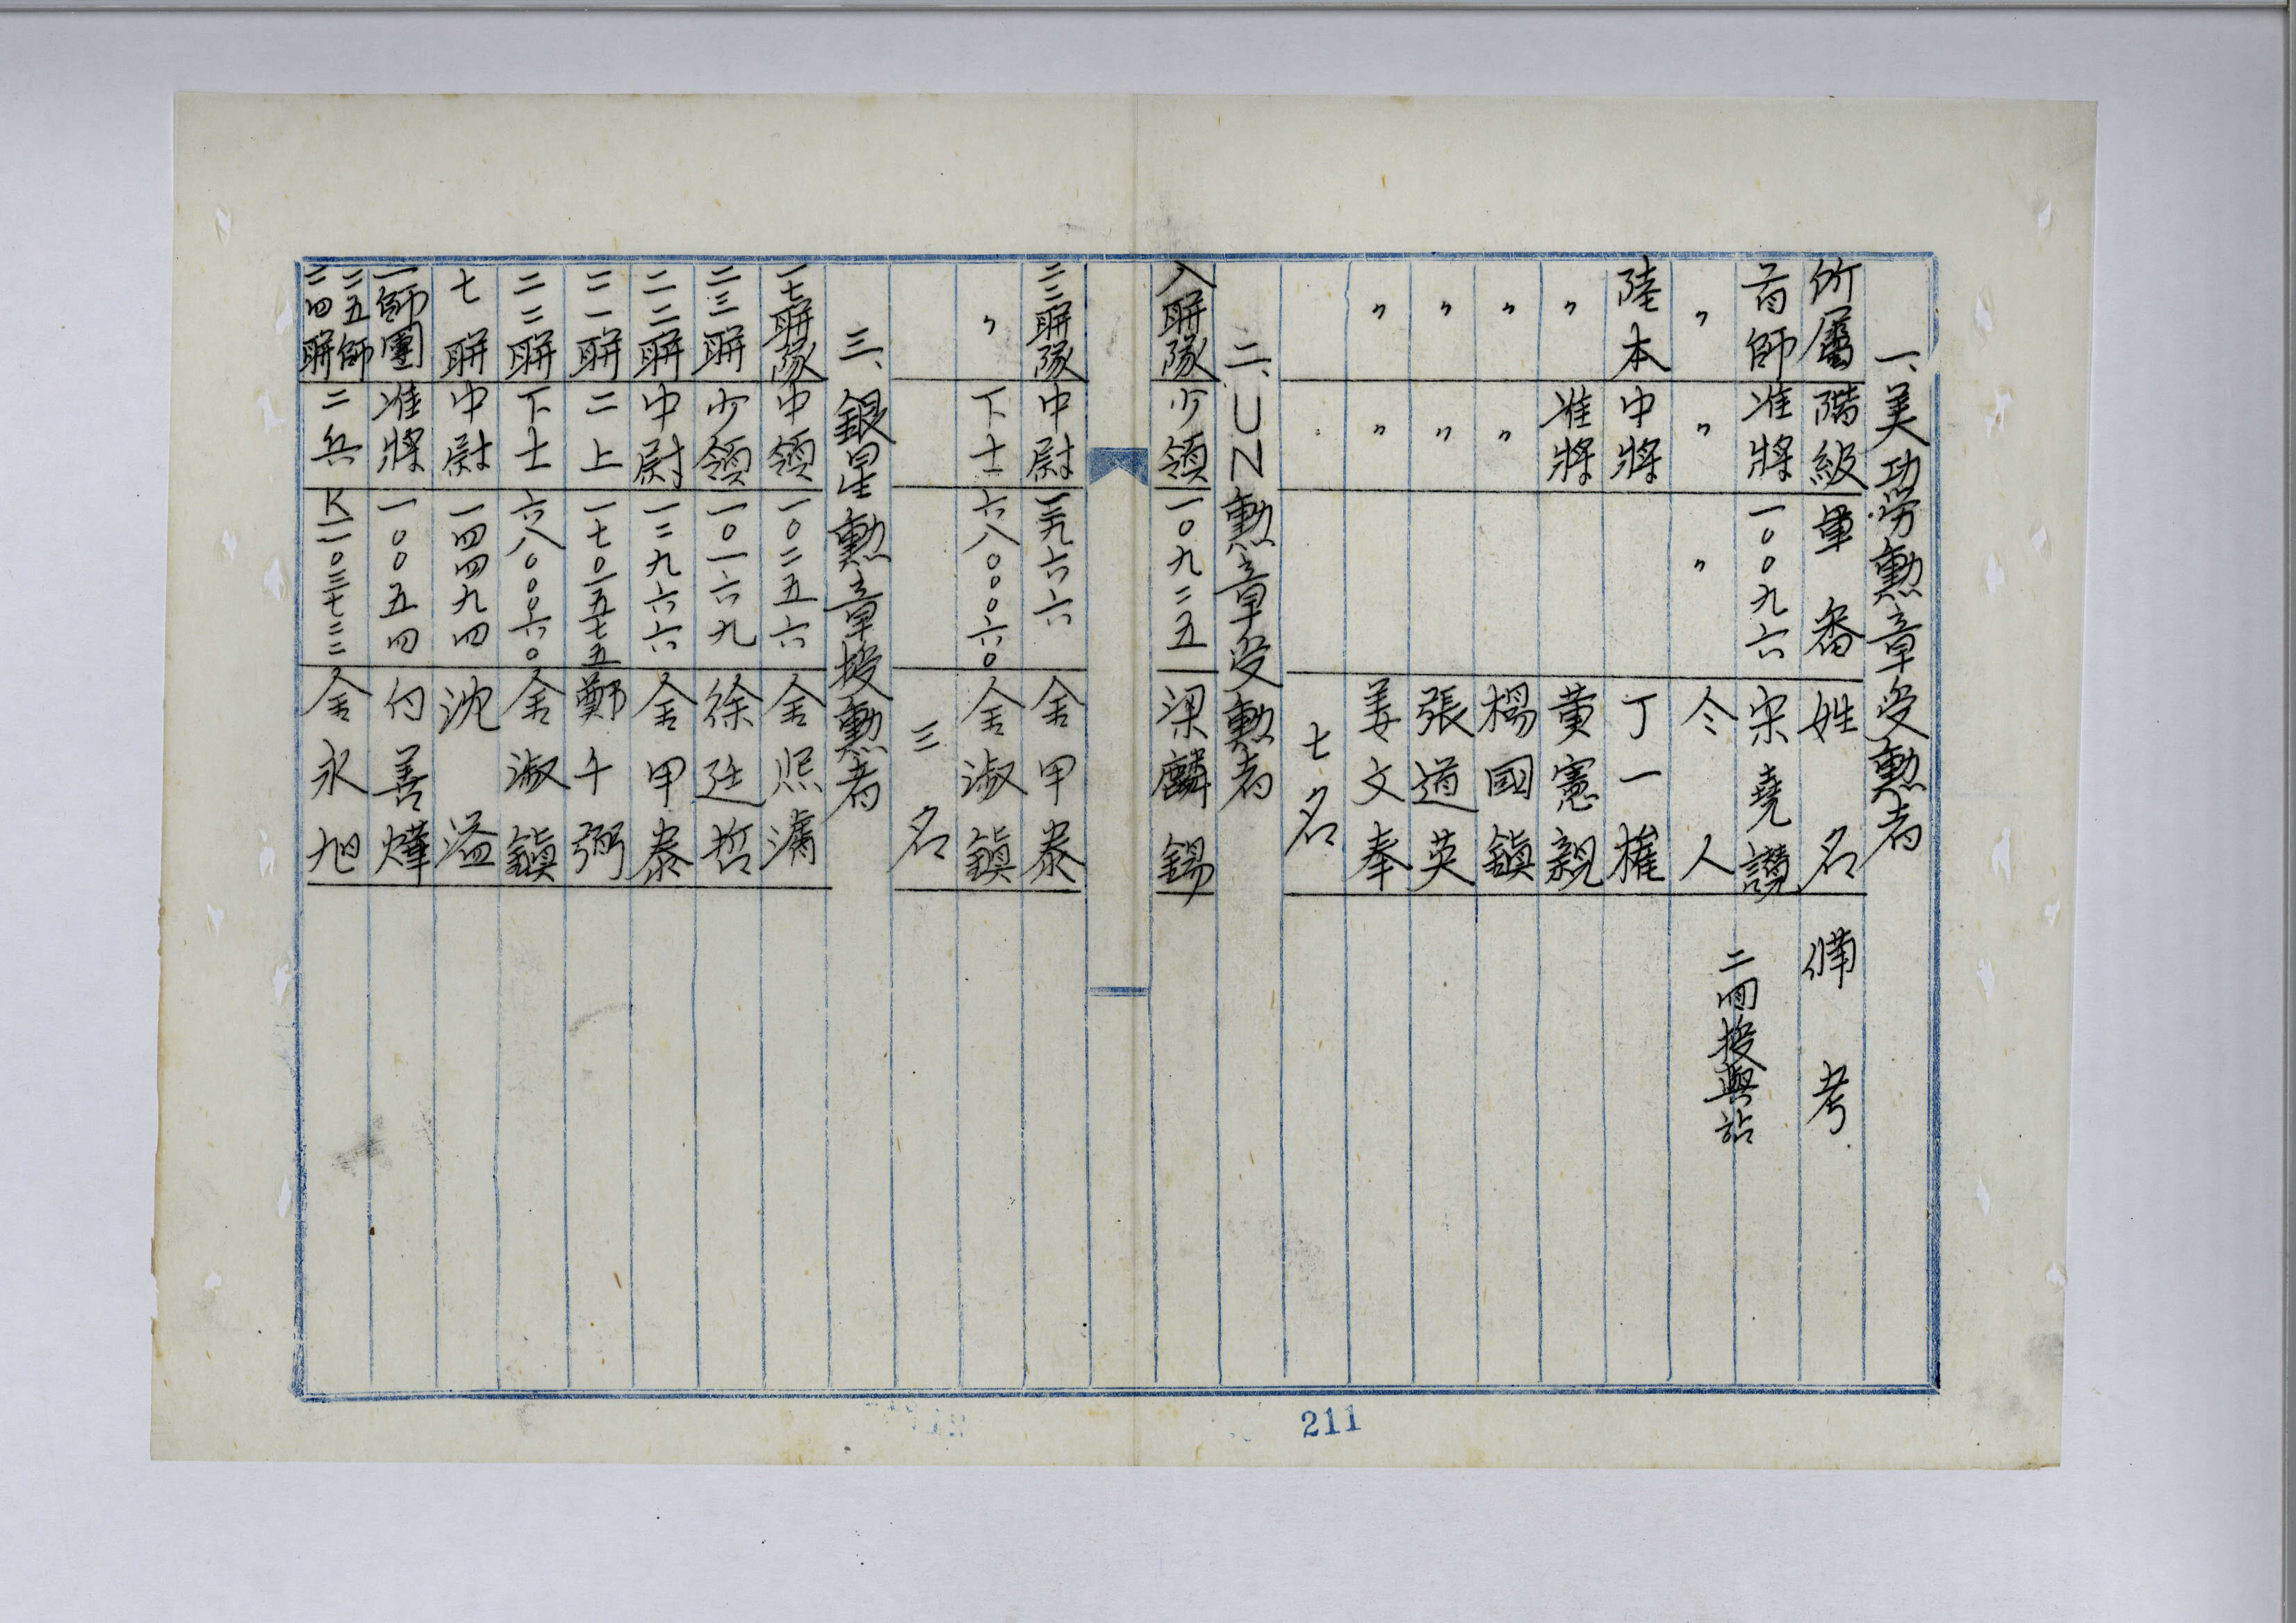 一、美功勞勳章受勳者
所屬 階級 軍番 姓名 備考
首師 准將 一〇〇九六 宋堯讚
〃 〃 〃 仝人 二回授與됨
陸本 中將 丁一權
〃 准將 黃憲親
〃 〃 楊國鎭
〃 〃 張道英
〃 〃 姜文奉
七名
二、UN勳章受勳者
八聯隊 少領 一〇九二五 梁麟錫
二二聯隊 中尉 一二九六六 金甲泰
〃 下士 六八〇〇〇六〇 金淑鎭
三名
三、銀星勳章授勳者
一七聯隊 中領 一〇二五六 金熙濬
二三聯 少領 一〇一六九 徐廷哲
二二聯 中尉 一二九六六 金甲泰
二一聯 二上 一七〇一五七五 鄭千弼
二二聯 下士 六八〇〇〇六〇 金淑鎭
七聯 中尉 一四四九四 沈溢
一師團 准將 一〇〇五四 白善燁
二五師 二四聯 二兵 K一一〇三七二二 金永旭
211